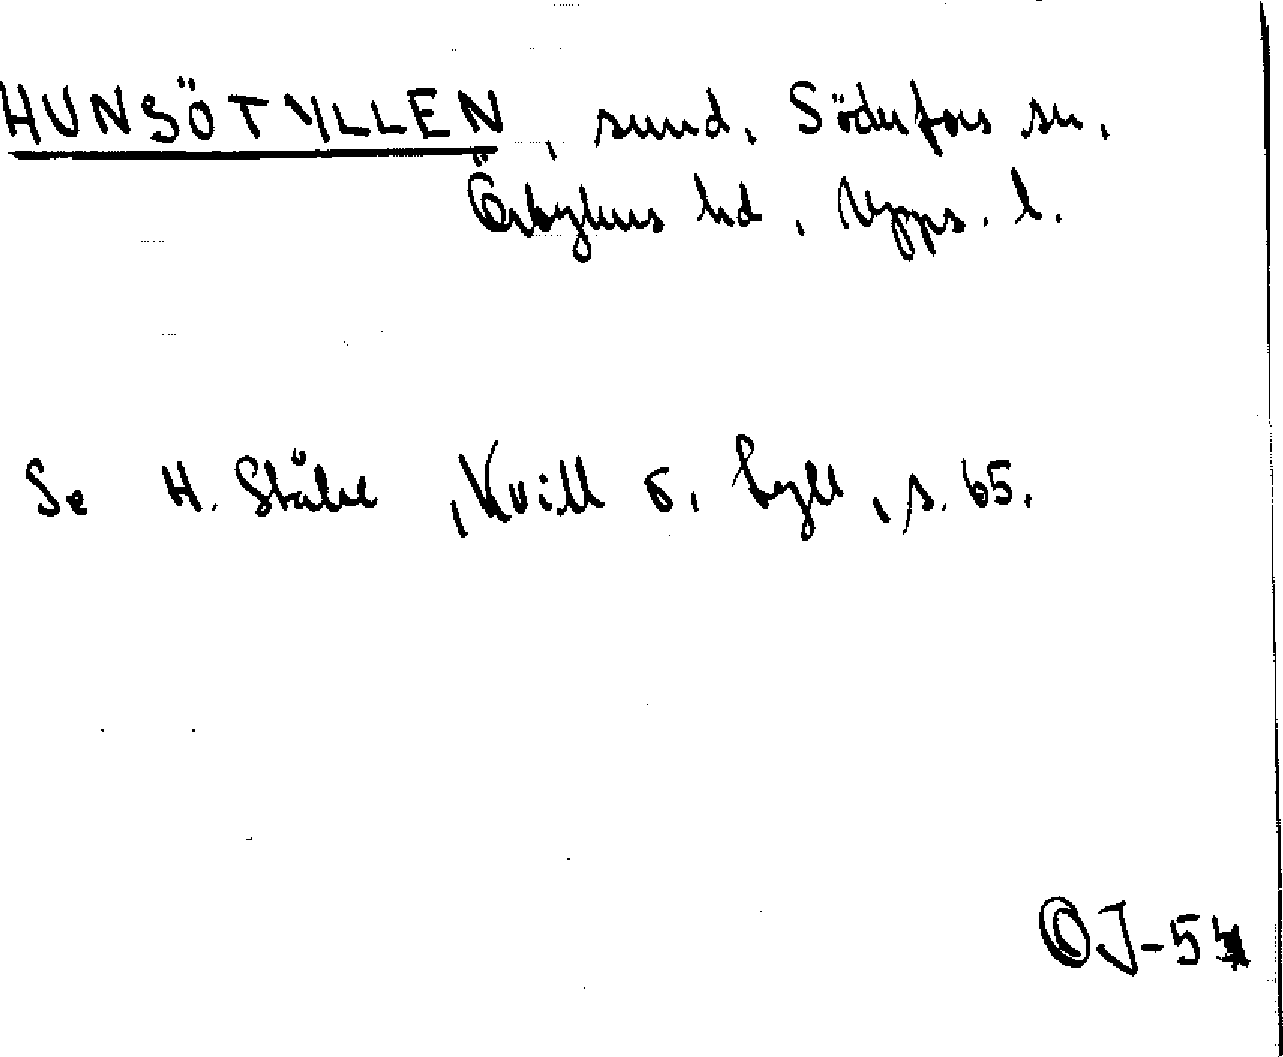 HUNSÖTYLLEN, sund, Söderfors sn,
Örbyhus hd, Upps. l.
Se H. Ståhl, Kvill o. tyll, s. 65.
OJ-54